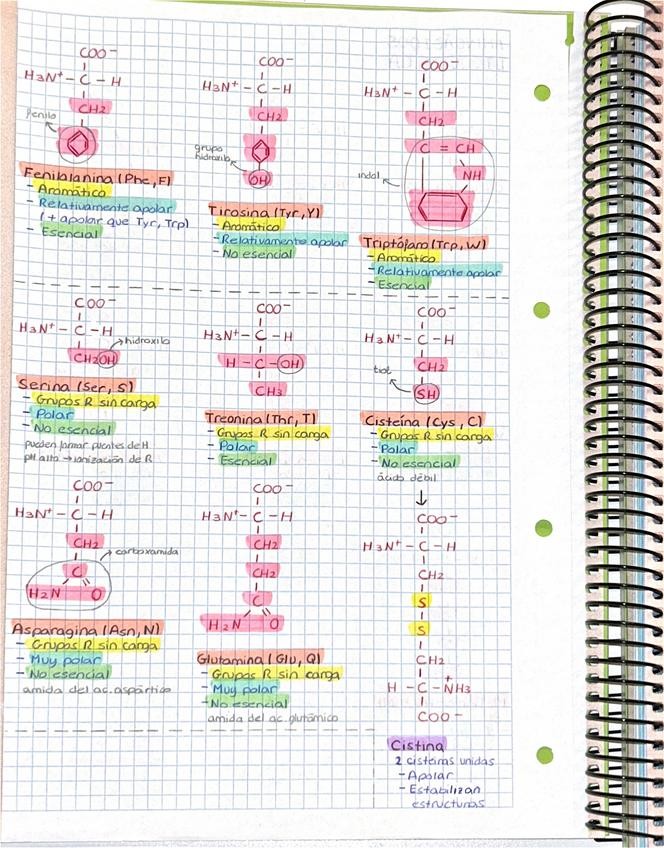 COO⁻
H₃N⁺ – C – H
CH₂
fenilo
Fenilalanina (Phe, F)
- Aromático
- Relativamente apolar
(+ apolar que Tyr, Trp)
- Esencial
COO⁻
H₃N⁺ – C – H
CH₂
grupo
hidroxilo
OH
Tirosina (Tyr, Y)
- Aromático
- Relativamente apolar
- No esencial
COO⁻
H₃N⁺ – C – H
CH₂
C = CH
NH
indol
Triptófano (Trp, W)
- Aromático
- Relativamente apolar
- Esencial
COO⁻
H₃N⁺ – C – H
hidroxilo
CH₂OH
Serina (Ser, S)
- Grupos R sin carga
- Polar
- No esencial
pueden formar puentes de H
pH alto → ionización de R
COO⁻
H₃N⁺ – C – H
H – C – OH
CH₃
Treonina (Thr, T)
- Grupos R sin carga
- Polar
- Esencial
COO⁻
H₃N⁺ – C – H
CH₂
tiol
SH
Cisteína (Cys, C)
- Grupos R sin carga
- Polar
- No esencial
ácido débil
↓
COO⁻
H₃N⁺ – C – H
CH₂
S
S
CH₂
H – C – N⁺H₃
COO⁻
Cistina
2 cisteínas unidas
- Apolar
- Estabilizan
estructuras
COO⁻
H₃N⁺ – C – H
CH₂
carboxamida
C
H₂N O
Asparagina (Asn, N)
- Grupos R sin carga
- Muy polar
- No esencial
amida del ac. aspártico
COO⁻
H₃N⁺ – C – H
CH₂
CH₂
C
H₂N O
Glutamina (Glu, Q)
- Grupos R sin carga
- Muy polar
- No esencial
amida del ac. glutámico